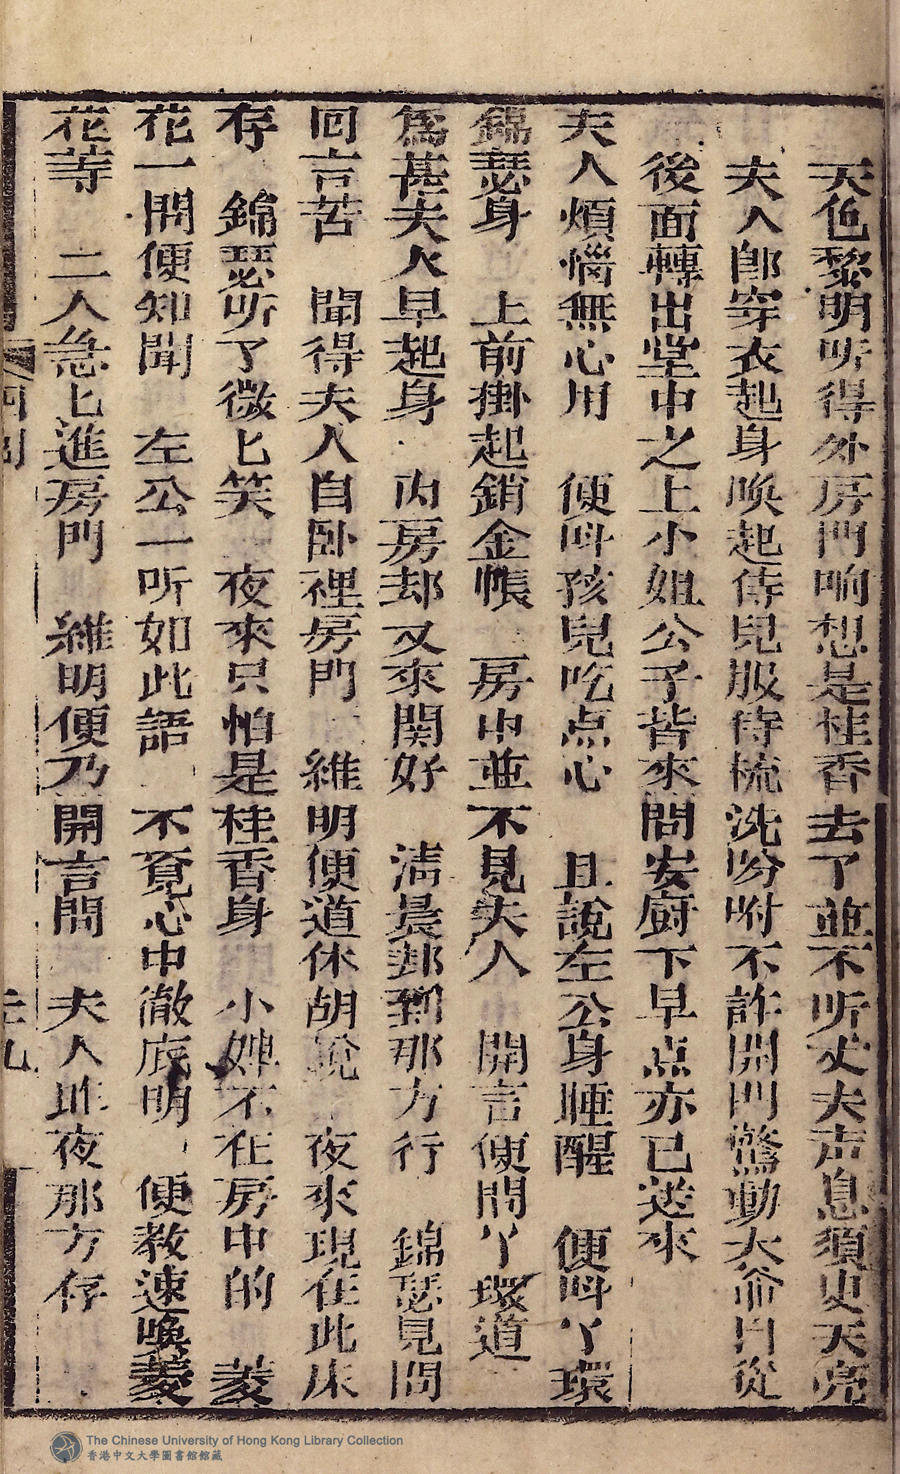 天色黎明听得外房門响想是桂香去了並不听丈夫声息須臾天亮
夫人即穿衣起身喚起侍兒服侍梳洗吩咐不許開門驚動大爺自從
後面轉出堂中之上小姐公子皆來問安廚下早点亦已送來
夫人煩惱無心用　便呌孩兒吃点心　且說左公身睡醒　便呌丫環
錦瑟身　上前掛起銷金帳　房中並不見夫人　開言便問丫環道
為甚夫人早起身　内房却又來関好　清晨却到那方行　錦瑟見問
回言苦　聞得夫人自卧裡房門　維明便道休胡說　夜來現在此床
存　錦瑟听了微匕笑　夜來只怕是桂香身　小婢不在房中的　菱
花一問便知聞　左公一听如此語　不覔心中徹底明　便教速喚菱
花等　二人急匕進房門　維明便乃開言問　夫人昨夜那方存
四回
The Chinese University of Hong Kong Library Collection
香港中文大學圖書館館藏